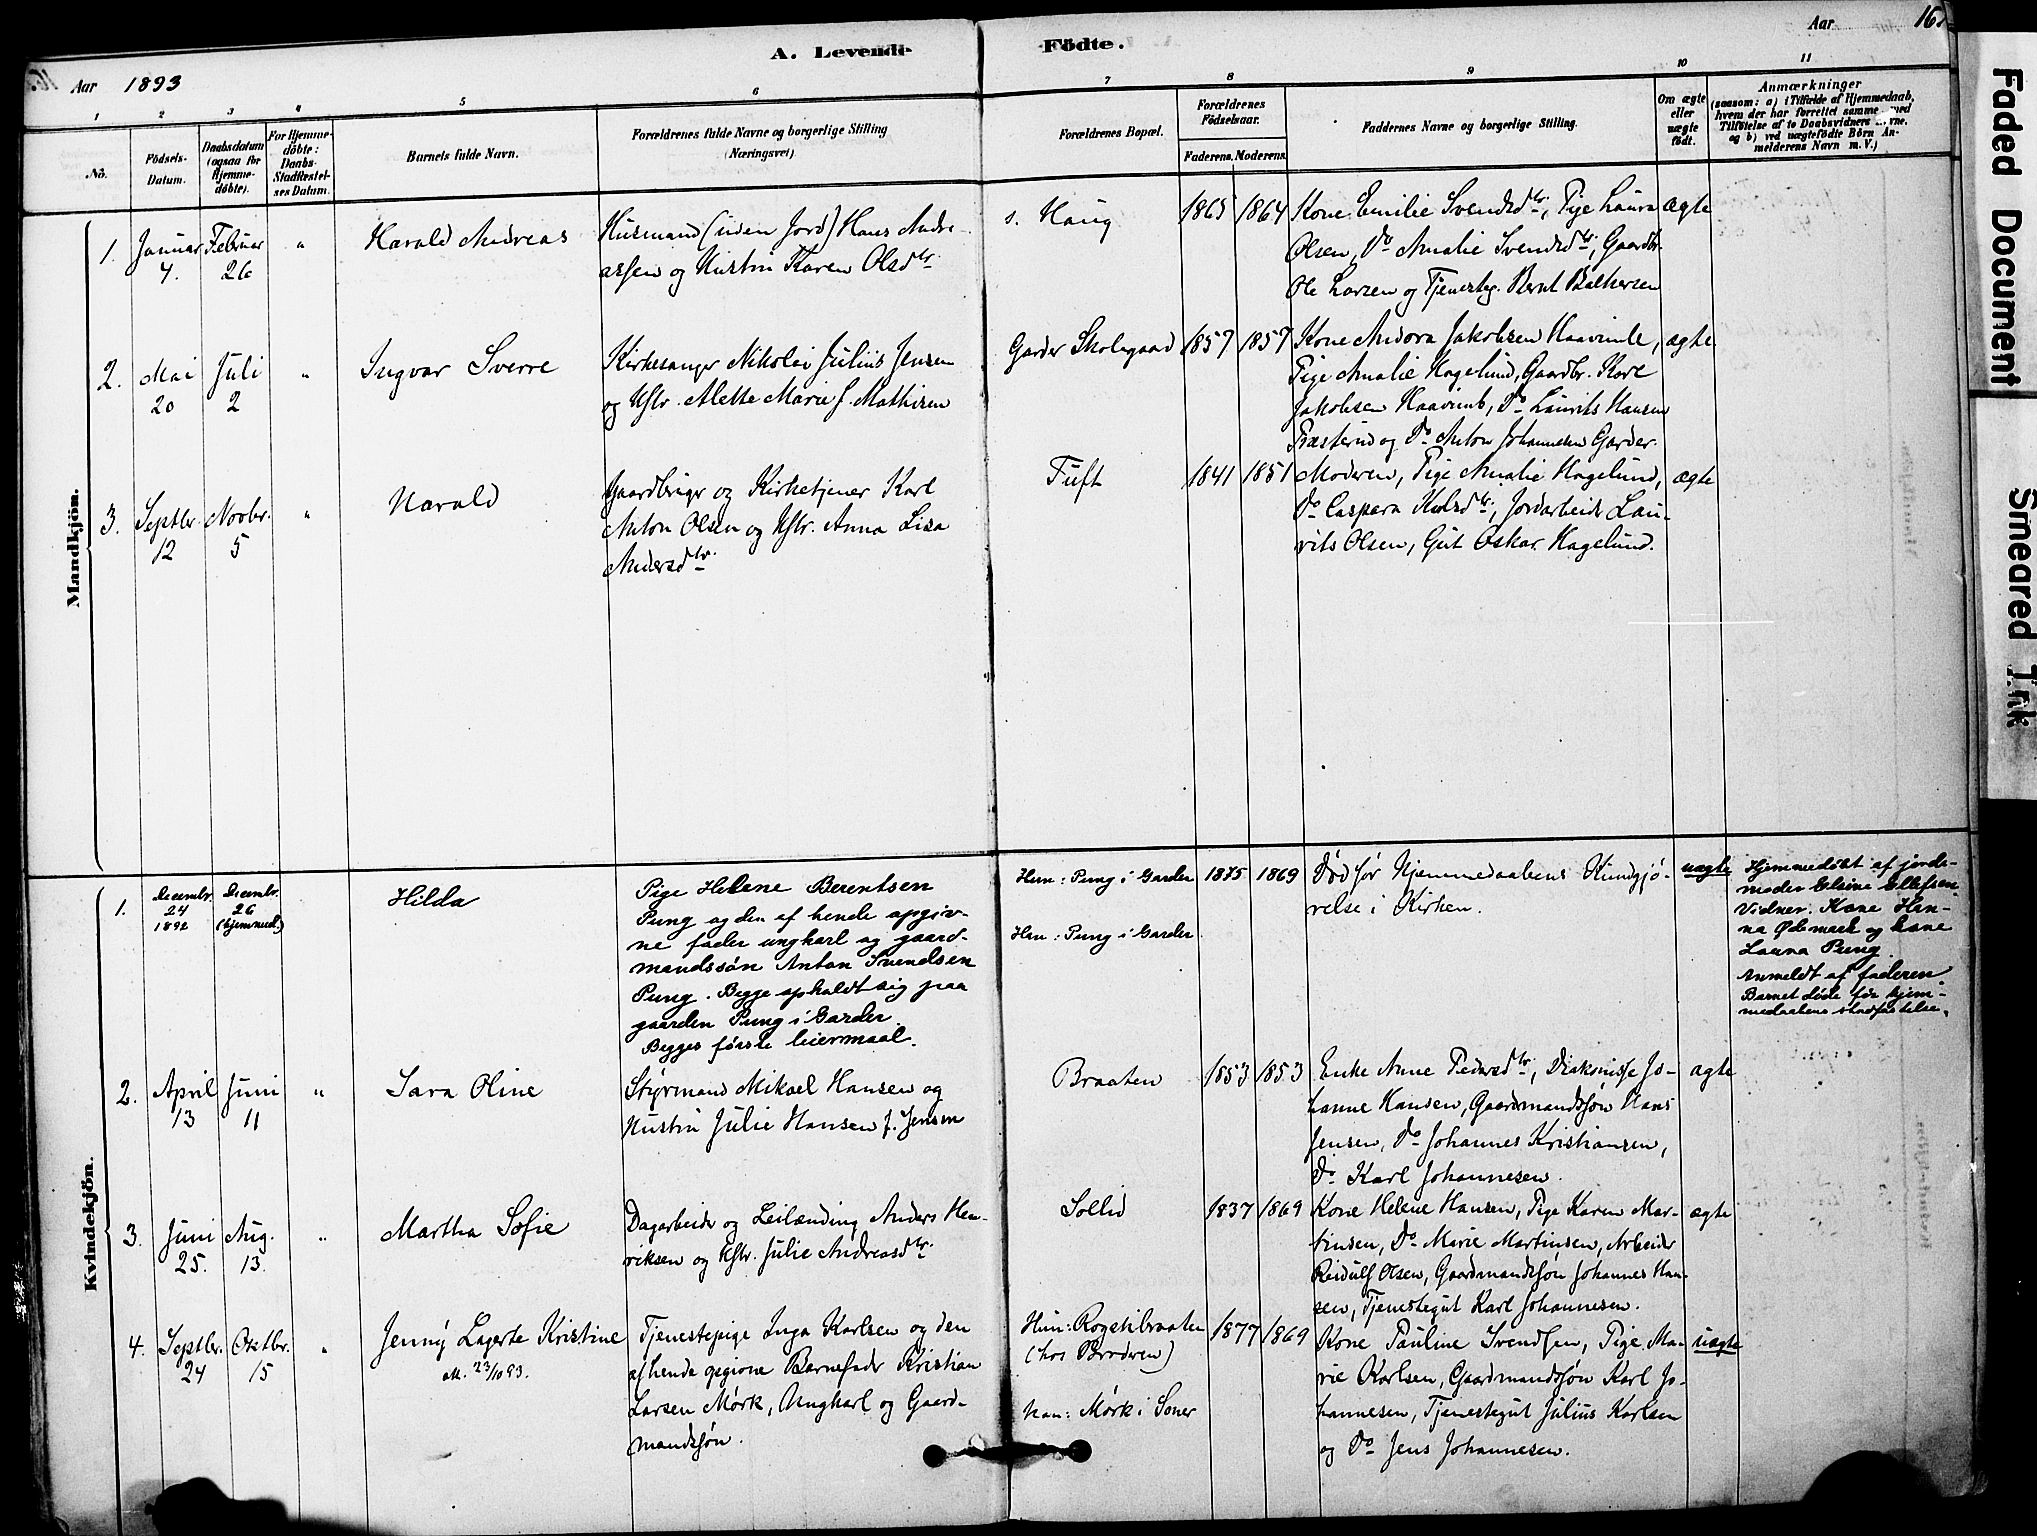 A. Levende Födte.
Aar 1893
Aar 16
1 2 3 4 5 6 7 8 9 10 11
No.
Födsels-Datum.
Daabsdatum (ogsaa for Hjemme-döbte).
For Hjemme-döbte: Daabs-Stadfæstel-ses Datum.
Barnets fulde Navn.
Forældrenes fulde Navne og borgerlige Stilling
(Næringsvei)
Forældrenes Bopæl.
Forældrenes Födselsaar.
Faderens. Moderens.
Faddernes Navne og borgerlige Stilling.
Om ægte eller uægte födt.
Anmærkninger
(saasom: a) i Tilfælde af Hjemmedaab,
hvem der har forrettet samme med
Tilföielse af to Daabsvidners Navne.
og b) ved uægtefödte Börn An-
melderens Navn m. V.)
Mandkjön.
1. Januar 4. Februar 26 " Harald Andreas
Husmand (uden Jord) Hans Andre-
assen og Hustru Karen Olsdtr.
s. Haug 1865 1864
Kone Emilie Svendsdtr, Pige Laura
Olsen, Do Amalie Svendsdtr, Gaardbr.
Ole Larsen og Tjenesteg. Bernt Baltersen
ægte
2. Mai 20 Juli 2 " Ingvar Sverre
Kirkesanger Nikolai Julius Jensen
og Hstr. Alette Marie f. Mathisen
Garder Skolegaard 1857 1857
Kone Andora Jakobsen Haavimb,
Pige Amalie Hagelund, Gaardbr. Kare
Jakobsen Haavimb, Do Laurits Hansen
Præsterud og Do Anton Johannesen Garder.
ægte
3. Septbr. 12 Novbr. 5 " Harald
Gaardbruger og Kirketjener Karl
Anton Olsen og Hstr. Anna Lisa
Andersdtr.
Tuft 1841 1851
Moderen, Pige Amalie Hagelund,
Do Caspara Karlsdtr, Jordarbeider Lau-
rits Olsen, Gut Oskar Hagelund.
ægte
Kvindekjön.
1. Decembr. 24 1892 Decembr. 26 (hjemmed.) Hilda
Pige Helene Berentsen
Pung og den af hende opgiv-
ne fader ungkarl og gaard-
mandssön Anton Svendsen
Pung. Begge opholdt sig paa
gaarden Pung i Garder.
Begges förste leiermaal.
Hun: Pung i Garder 1875 1869
Han: Pung i Garder
Död för Hjemmedaabens Kundgjö-
relse i Kirken.
uægte
Hjemmedöbt af jorde-
moder Elaine Ellefsen
Vidner. Kone Han-
na Ödemark og kone
Laura Pung.
Anmeldt af faderen
Barnet döde för hjem-
medaabens stadfæstelse.
2. April 13 Juni 11 " Sara Oline
Styrmand Mikael Hansen og
Hustru Julie Hansen f. Jensen
Braaten 1853 1853
Enke Anne Pedersdtr, Diakonisse Jo-
hanne Hansen, Gaardmandssön Hans
Jensen, Do Johannes Kristiansen,
Do Karl Johannesen.
ægte
3. Juni 25. Aug. 13. " Martha Sofie
Dagarbeider og Leilænding Anders Hen-
riksen og Hstr. Julie Andreasdtr.
Sollid 1837 1869
Kone Helene Hansen, Pige Karen Mar-
tinsen, Do Marie Martinsen, Arbeider
Reidulf Olsen, Gaardmandssön Johannes Han-
sen, Tjenestegut Karl Johannesen.
ægte
4. Septbr. 24 Oktbr. 15 " Jenny Lagerte Kristine
M. 23/10 93.
Tjenestepige Inga Karlsen og den
af hende opgivne Barnefader Kristian
Larsen Mörk, Ungkarl og Gaard-
mandssön.
Hun: Rogstibraaten 1877 1869
(hos Broderen)
Han: Mörk i Soner
Kone Pauline Svendsen, Pige Ma-
rie Karlsen, Gaardmandssön Karl Jo-
hannesen, Tjenestegut Julius Karlsen
og Do Jens Johannesen.
uægte
Faded Document
Smeared Ink